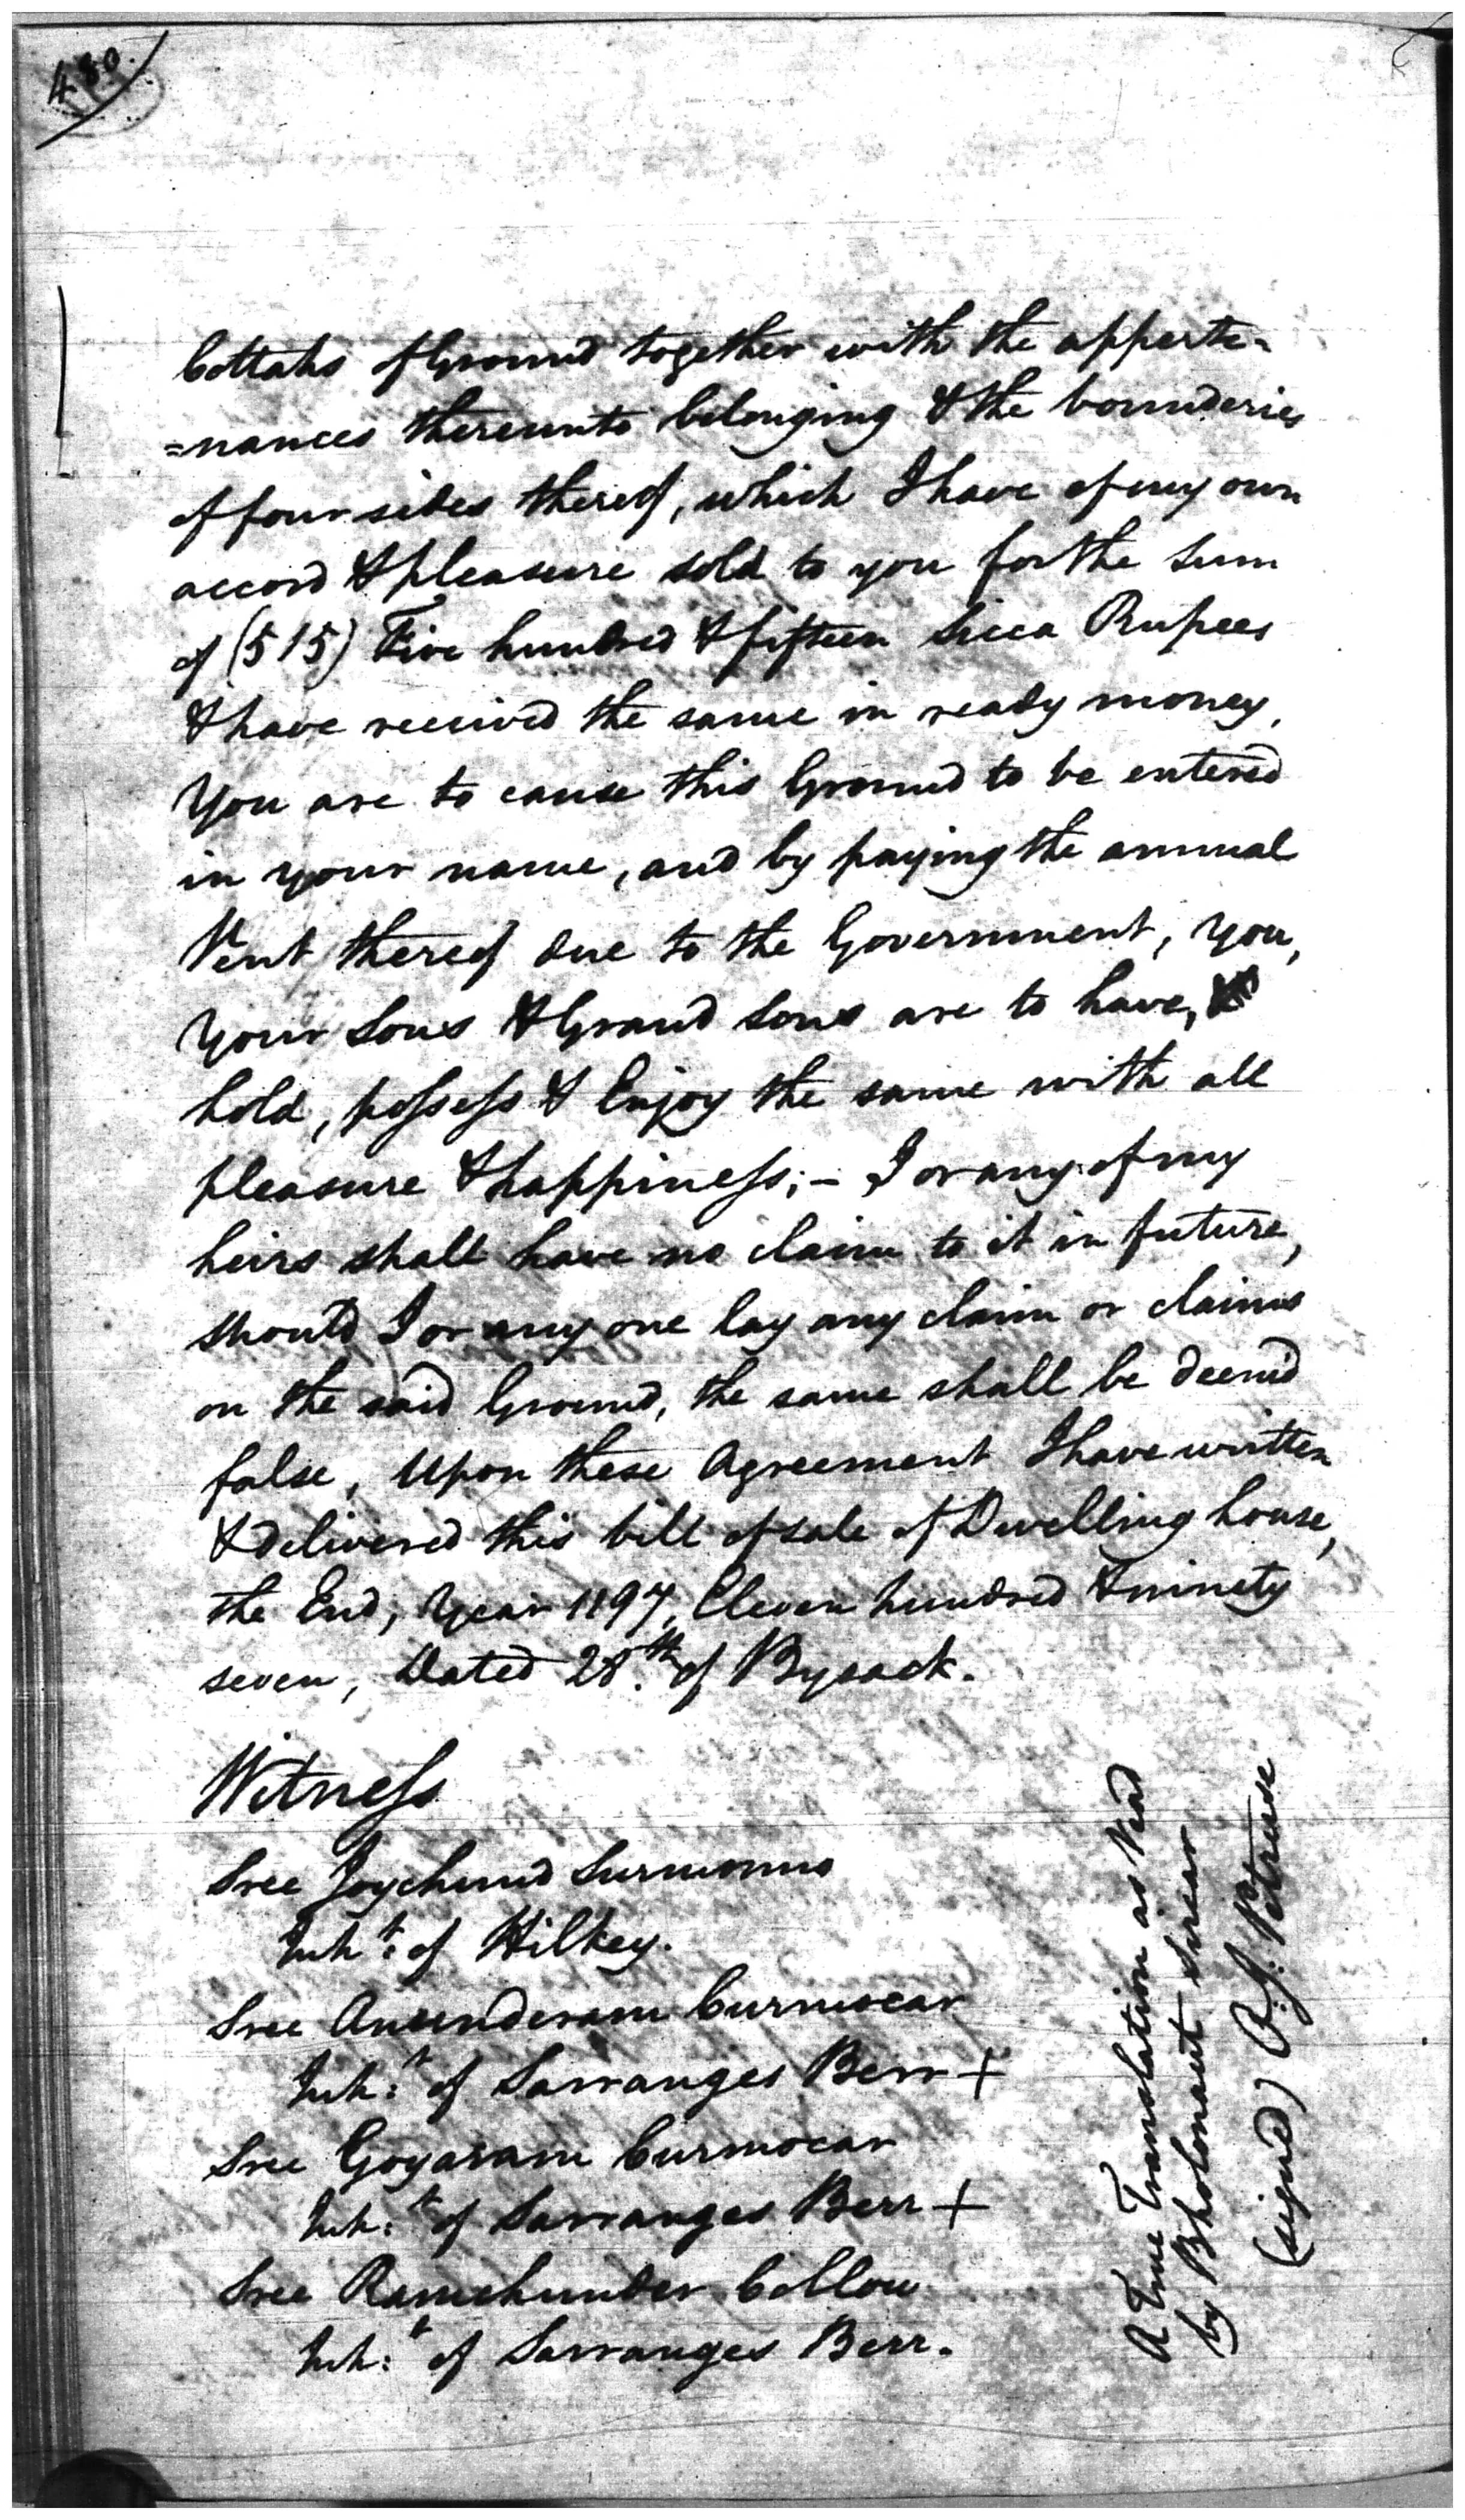 480.
Cottahs of Ground together with the apperte=
=nances thereunto belonging & the bounderies
of four sides thereof, which I have of my own
accord & pleasure sold to you for the sum
of (515) Five hundred & fifteen Sicca Rupees
& have received the same in ready money,
You are to cause this Ground to be entered
in your name, and by paying the annual
Rent thereof due to the Government, you,
Your Sons & Grand Sons are to have,
hold, possess & Enjoy the same with all
pleasure & happiness; – I or any of my
heirs shall have no claim to it in future,
should I or any one lay any claim or claims
on the said Ground, the same shall be deemed
false, Upon these Agreement I have written
& delivered this bill of sale of Dwelling house,
the End, Year 1197, Eleven hundred & ninety
seven, Dated 28th of Bysack.
Witness
Sree Joychund Surmono
Inht: of Hilkey.
Sree Anunderam Curmocar
Inh:t of Sarranges Berr +
Sree Goyaram Curmocar
Inh:t of Sarranges Berr +
Sree Ramchunder Collow
Inh:t of Sarranges Berr.
A True Translation as Read
by Bholonaut Sircar
(signed) P. J. Petruse